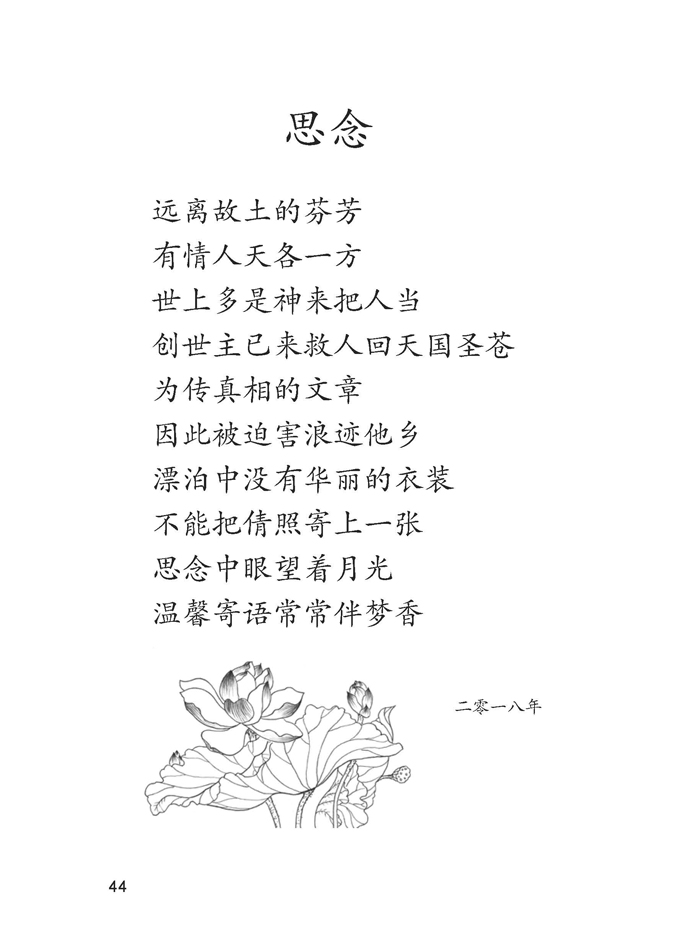 思念
远离故土的芬芳
有情人天各一方
世上多是神来把人当
创世主已来救人回天国圣苍
为传真相的文章
因此被迫害浪迹他乡
漂泊中没有华丽的衣装
不能把倩照寄上一张
思念中眼望着月光
温馨寄语常常伴梦香
二零一八年
44